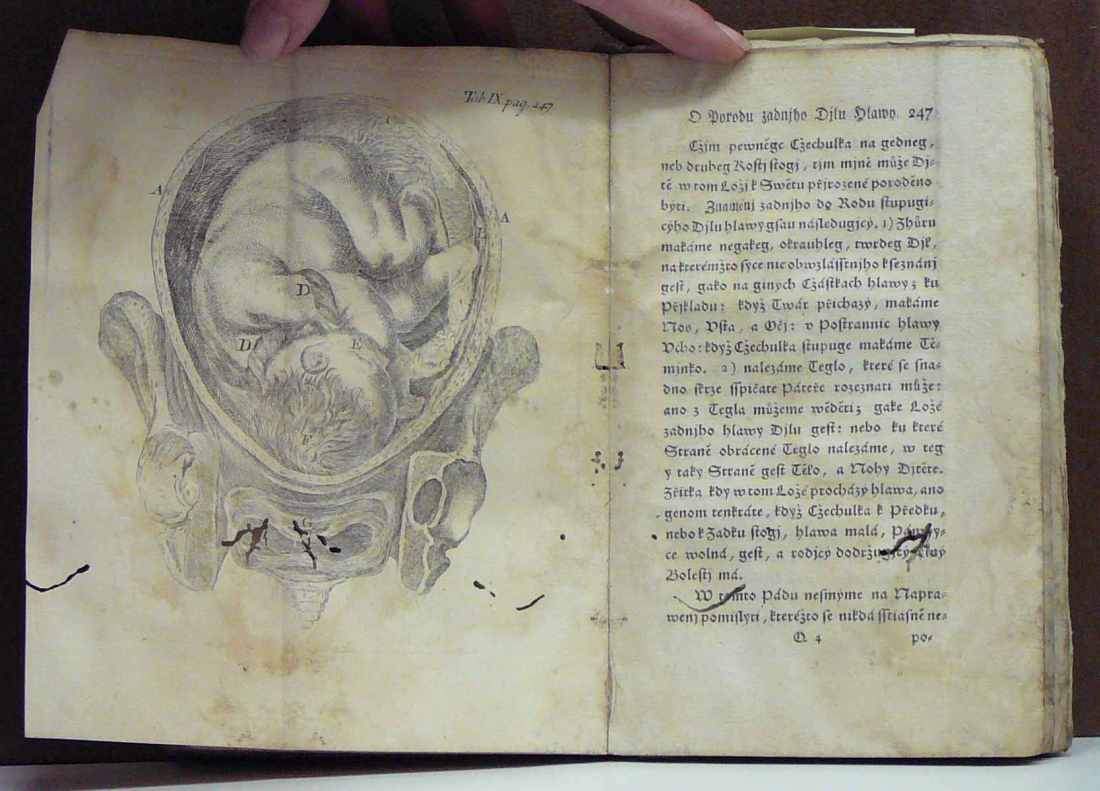 Tab IX pag. 247
A
C
A
D
D
E
F
G
O Porodu zadnjho Djlu Hlawy. 247
Cžjm pewněge Cžechulka na gedneg,
neb druheg Kostj stogj, tjm mjně může Dj-
tě w tom Loži k Swětu přirozeně porоděno
býti. Znamenj zadnjho do Rodu stupugj-
cýho Djlu hlawy gsau následugjcý. 1) Zhůru
makáme negakeg, okrauhleg, twrdeg Djl,
na kterémžto syce nic obwzlásstnjho k seznánj
gest, gako na giných Cžástkách hlawy; ku
Přjkladu: když Twář přicházý, makáme
Nos, Usta, a Oči: v Postrannic hlawy
Vcho: když Cžechulka stupuge makáme Tě-
mjnko. 2) nalezáme Teglo, které se sna-
dno skrze sspičaté Páteře rozeznati může:
ano z Tegla můžeme wěděti; gaké Lože
zadnjho hlawy Djlu gest: nebo ku které
Straně obrácené Teglo nalezáme, w teg
y taky Straně gest Tělo, a Nohy Djtěte.
Zřjtka kdy w tom Lože procházý hlawa, ano
genom tenkráte, když Cžechulka k Předku,
nebo k Zadku stogj, hlawa malá,
ce wolná, gest, a rodjcý
Bolestj má.
W tomto Pádu nesmýme na Napra-
wenj pomysliti, kteréžto se nikdá sstiastně ne-
Q 4 po-